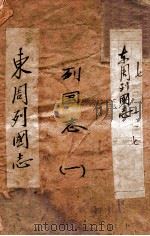 東周列國志
列國志（一）
東周列國志